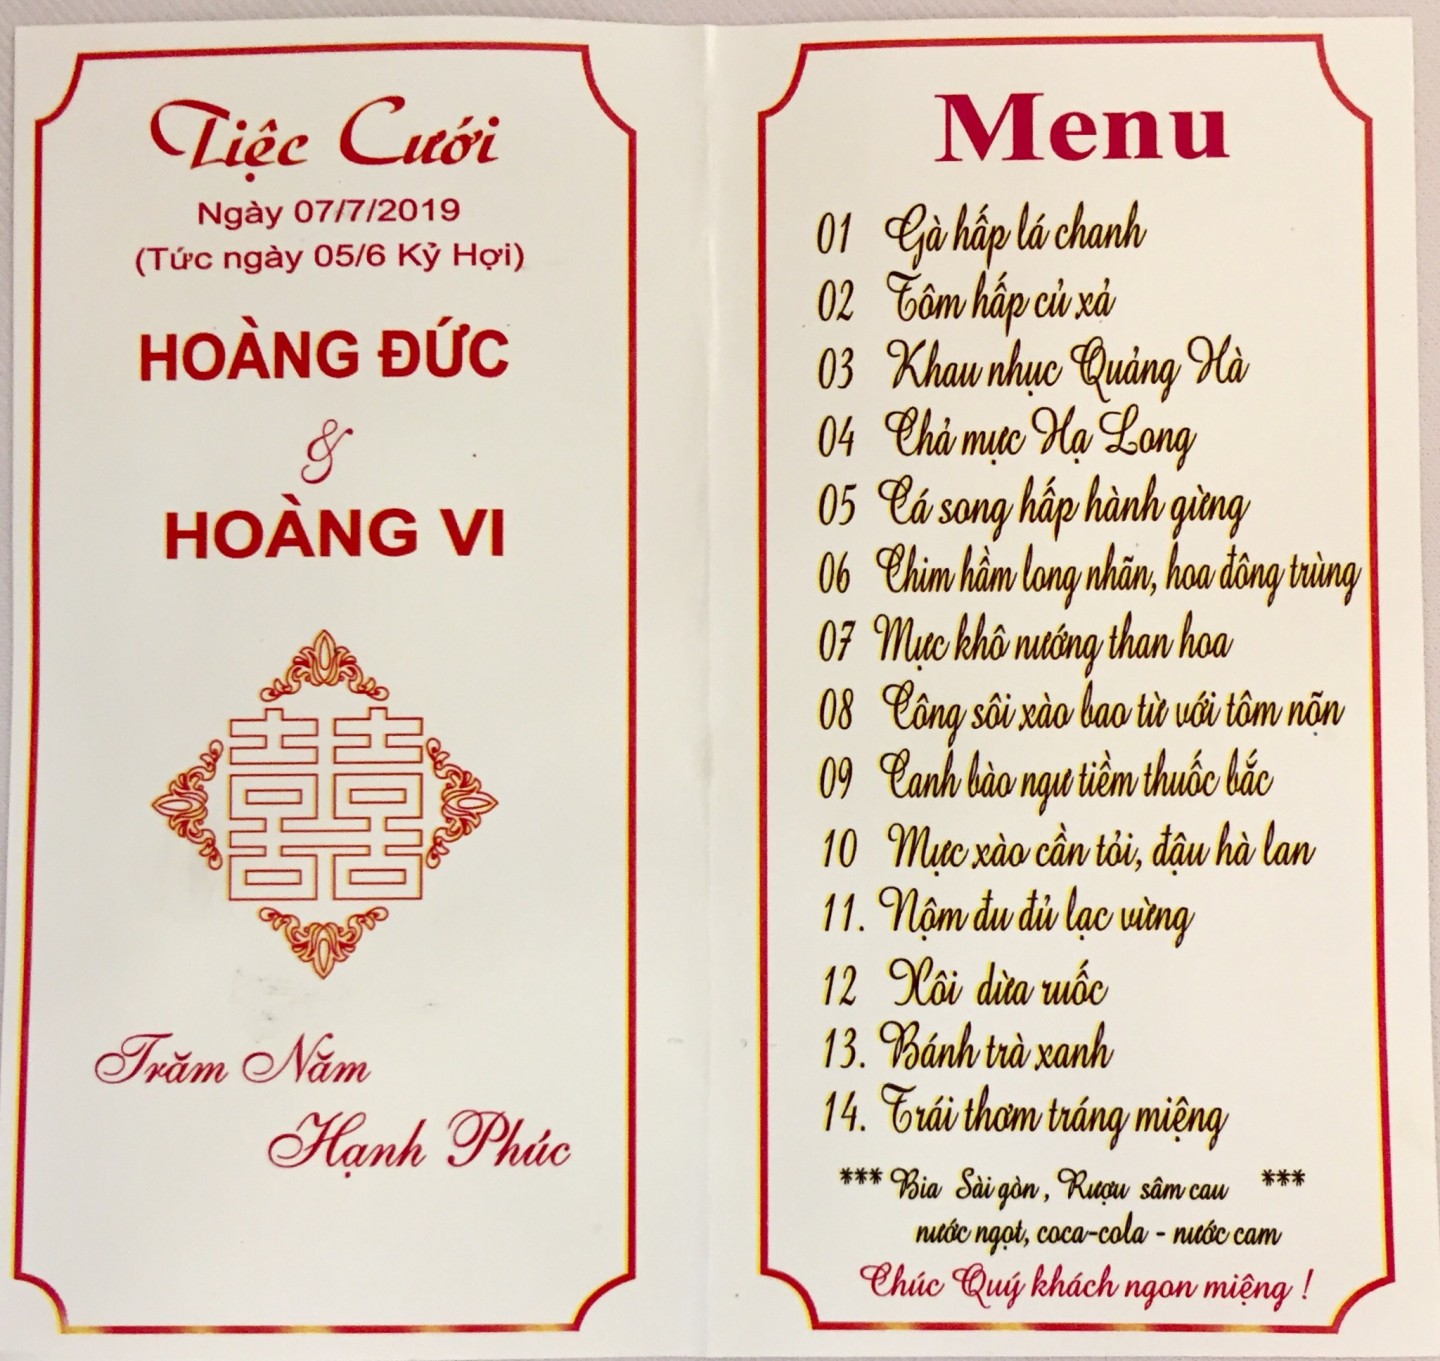 Tiệc Cưới
Ngày 07/7/2019
(Tức ngày 05/6 Kỷ Hợi)
HOÀNG ĐỨC
&
HOÀNG VI
囍
Trăm Năm
Hạnh Phúc
Menu
01 Gà hấp lá chanh
02 Tôm hấp củ xả
03 Khau nhục Quảng Hà
04 Chả mực Hạ Long
05 Cá song hấp hành gừng
06 Chim hầm long nhãn, hoa đông trùng
07 Mực khô nướng than hoa
08 Công sôi xào bao tử với tôm nõn
09 Canh bào ngư tiềm thuốc bắc
10 Mực xào cần tỏi, đậu hà lan
11. Nộm đu đủ lạc vừng
12 Xôi dừa ruốc
13. Bánh trà xanh
14. Trái thơm tráng miệng
*** Bia Sài gòn, Rượu sâm cau ***
nước ngọt, coca-cola - nước cam
Chúc Quý khách ngon miệng !